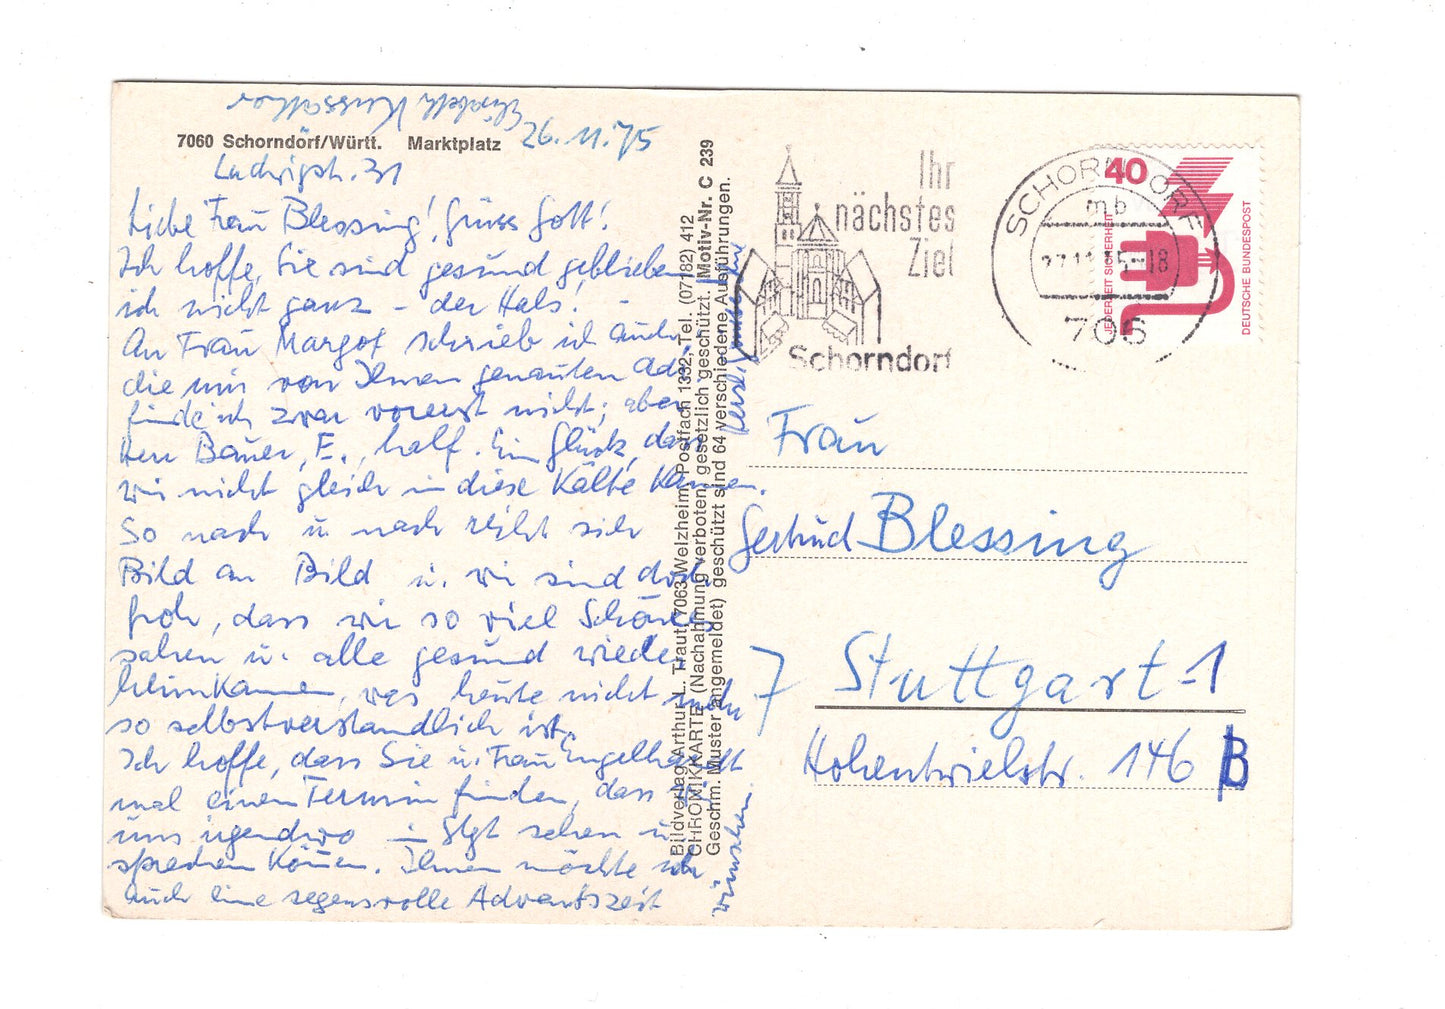 26.11.75
7060 Schorndorf/Württ. Marktplatz
Ludwigstr. 31
Liebe Frau Blessing! Grüss Gott!
Ich hoffe, Sie sind gesund geblieben
ich nicht ganz – der Hals! –
An Frau Margot schrieb ich auch
die mir von Ihnen genannten Adr.
finde ich zwar vorerst nicht; aber
Herr Bauer, E., half. Ein Glück, dass
wir nicht gleich in diese Kälte kamen.
So nach u nach reiht sich
Bild an Bild u. wir sind doch
froh, dass wir so viel Schönes
sahen u. alle gesund wieder
heimkamen, was heute nicht mehr
so selbstverständlich ist.
Ich hoffe, dass Sie u. Frau Engelhardt
mal einen Termin finden, dass wir
uns irgendwo in Stgt sehen u
sprechen können. Ihnen möchte ich
auch eine segensvolle Adventszeit
wünschen.
Bildverlag Arthur L. Traut, 7063 Welzheim, Postfach 1332, Tel. (07182) 412
CHRONIKKARTE (Nachahmung verboten) gesetzlich geschützt. Motiv-Nr. C 239
Geschm. Muster angemeldet) geschützt sind 64 verschiedene Ausführungen.
Ihr
nächstes
Ziel
Schorndorf
SCHORNDORF
mb
706
40
JEDERZEIT SICHERHEIT
DEUTSCHE BUNDESPOST
Frau
Gertrud Blessing
7 Stuttgart-1
Hohentwielstr. 146 B